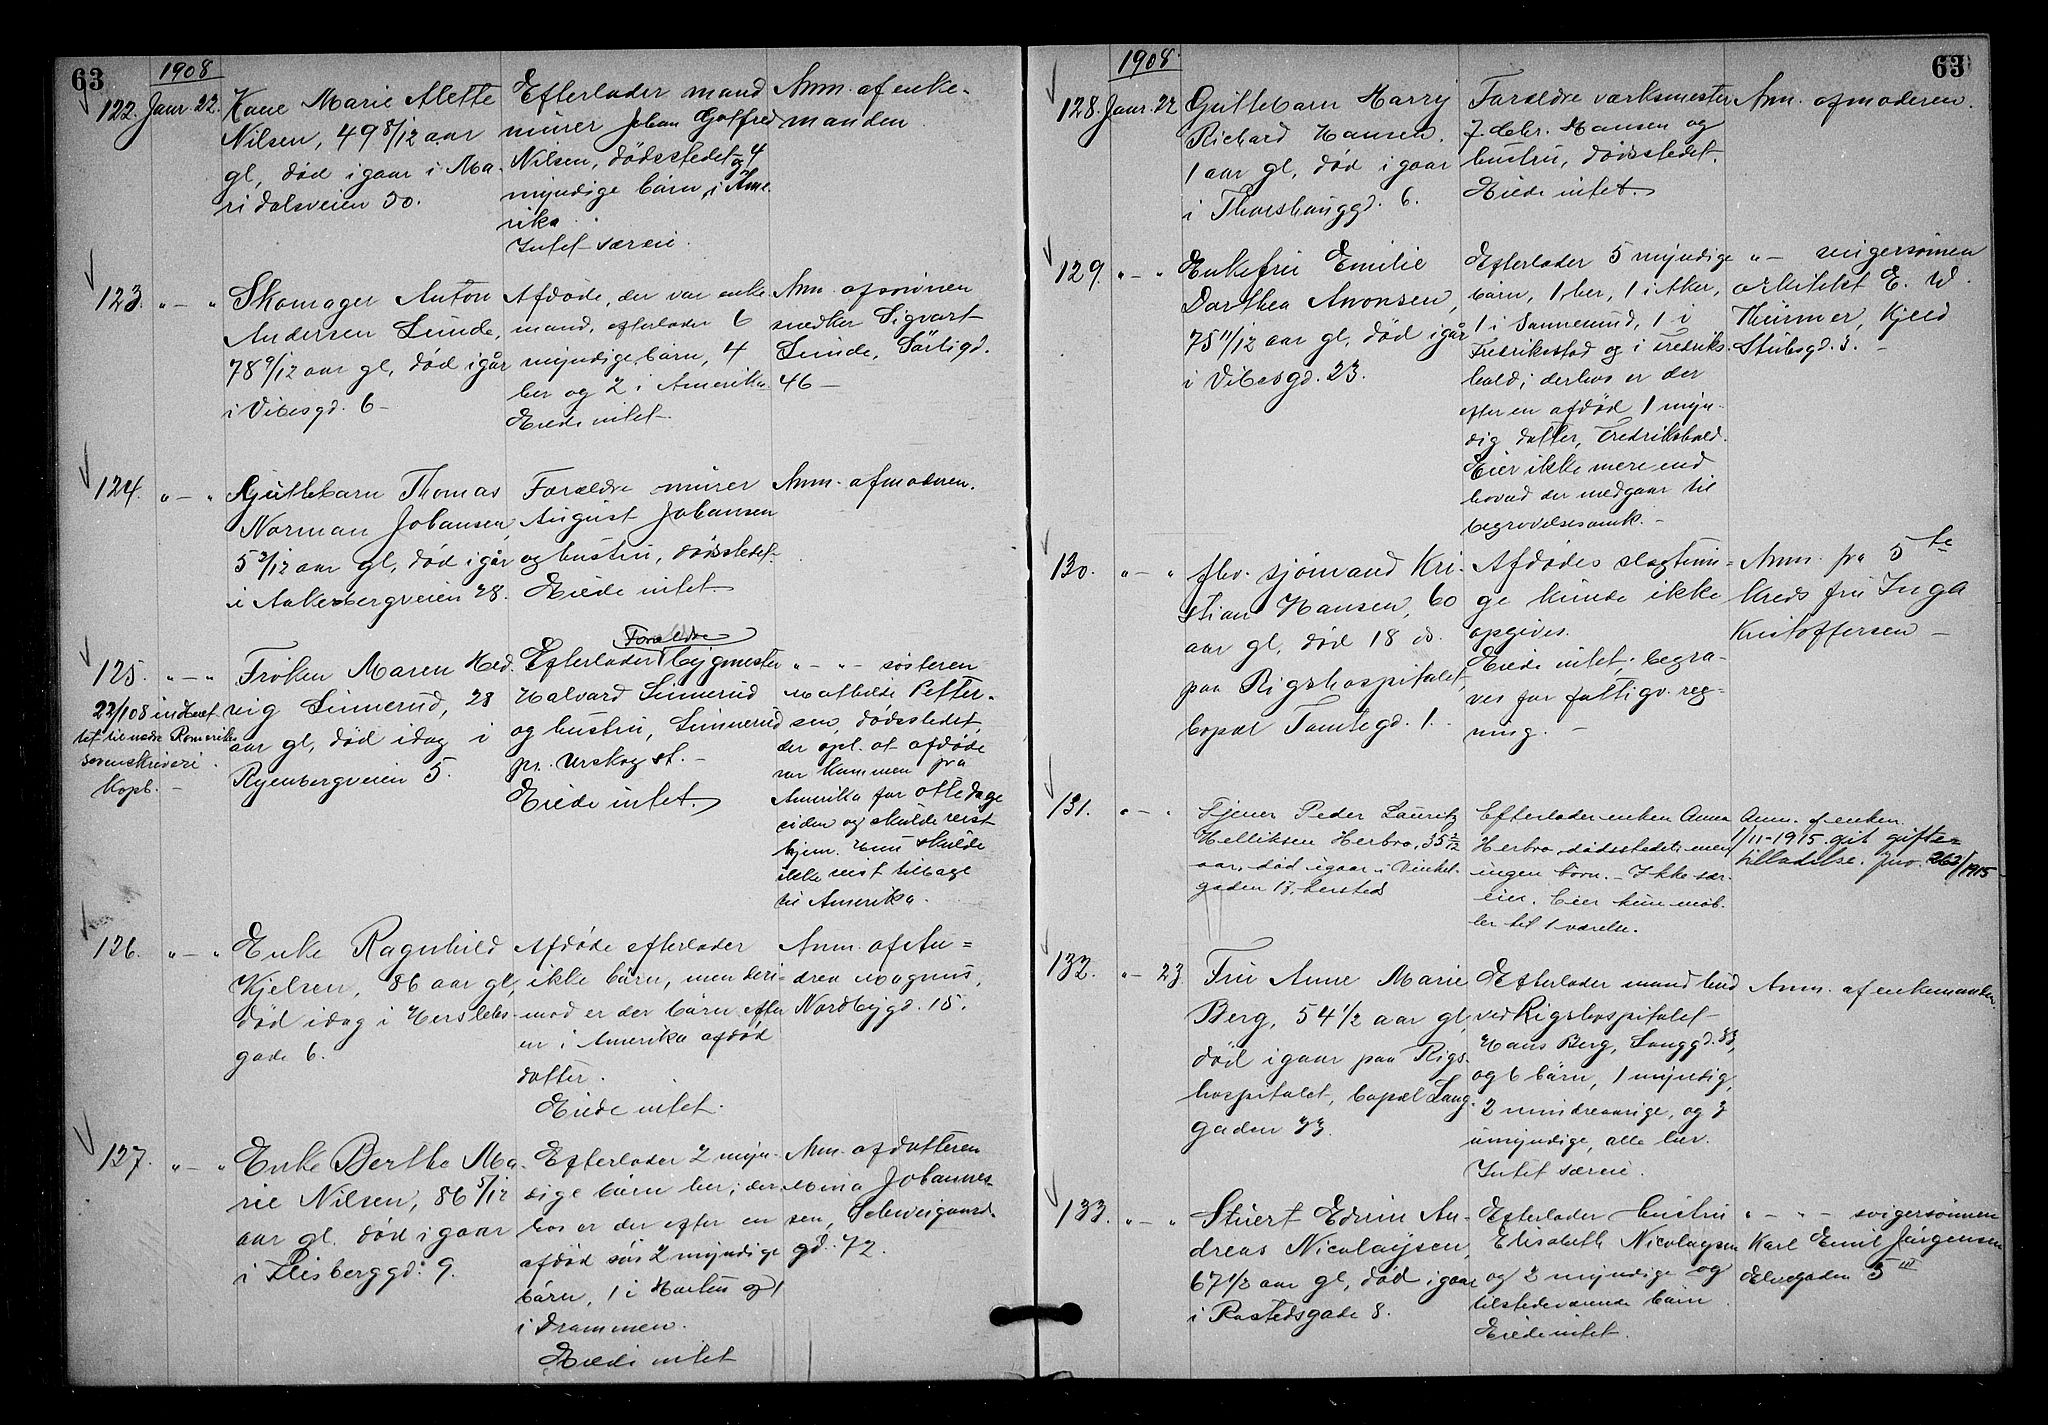 63
1908
122. Janr. 22. Kone Marie Alette
Nilsen, 49 8/12 aar
gl, død igaar i Ma-
ridalsveien 30.
Efterlader mand
murer Johan Gotfred
Nilsen, dødsstedet og 4
myndige børn i Ame-
rika
Intet særeie.
Anm. af enke-
manden
123. " — " Skomager Anton
Andersen Lunde,
78 9/12 aar gl, død igår
i Vibesgd. 6 –
Afdøde, der var enke-
mand, efterlader 6
myndige børn, 4
her og 2 i Amerika
Eiede intet.
Anm. af sønnen
snedker Sigvart
Lunde, Sørligd.
46 –
124. " — " Guttebarn Thomas
Norman Johansen,
5 3/12 aar gl, død igår
i Aakerbergveien 28.
Forældre murer
August Johansen
og hustru, dødsstedet.
Eiede intet.
Anm. af moderen.
125. " — " Frøken Maren Hed-
vig Linnerud, 28
aar gl, død idag i
Ryenbergveien 5.
22/1 08 indberet-
tet til nedre Romerike
sorenskriveri.
Kopb. –
Forældre
Efterlader bygmester
Halvard Linnerud
og hustru, Linnerud
pr. Urskog st. –
Eiede intet.
" — " søsteren
Mathilde Petter-
sen, dødsstedet,
der opl. at afdøde
var kommen fra
Amerika for otte dage
siden og skulde reist
hjem. Hun skulde
ikke reist tilbage
til Amerika.
126. " — " Enke Ragnhild
Kjelsen, 86 aar gl,
død idag i Herslebs-
gade 6.
Afdøde efterlader
ikke børn, men deri-
mod er der børn efter
en i Amerika afdød
datter.
Eiede intet.
Anm. af An-
drea Magnus,
Nordbygd. 15.
127. " — " Enke Berthe Ma-
rie Nilsen, 86 5/12
aar gl. død igaar
i Heisberggd. 9.
Efterlader 2 myn-
dige børn her; der-
hos er der efter en
afdød søn 2 myndige
børn, 1 i Horten og 1
i Drammen.
Eiede intet
Anm. af datteren
Mina Johannes-
sen, Schweigaard-
gd. 72.
63
1908.
128. Janr. 22 Guttebarn Harry
Richard Hansen,
1 aar gl, død igaar
i Thorshauggd. 6.
Forældre værksmester
Hansen og
hustru, dødsstedet.
Eiede intet.
Anm. af moderen.
129. " — " Enkefru Emilie
Dorthea Aronsen,
75 11/12 aar gl, død igår
i Vibesgd. 23.
Efterlader 5 myndige
børn, 1 her, 1 i Aker,
1 i Sannesund, 1 i
Fredrikstad og i Fredriks-
hald; derhos er der
efter en afdød 1 myn-
dig datter, Fredrikshald.
Eier ikke mere end
hvad der medgaar til
begravelsesomk. –
" — svigersønnen
arkitekt E. W.
Thürmer, Kjeld
Stubsgd. 3. –
130. " — " fhv. sjømand Kri-
stian Hansen, 60
aar gl, død 18 ds.
paa Rigshospitalet,
bopæl Tomtegd. 1.
Afdødes slægtnin-
ge kunde ikke
opgives.
Eiede intet; begra-
ves for fattigv. reg-
ning. –
Anm. fra 5te
kreds fru Inga
Kristoffersen –
131. " — " Tjener Peder Lauritz
Helliksen Herbro, 35 2/12
aar, død igaar i Vinkel-
gaden 17, hersteds
Efterlader enken Anna
Herbro, dødsstedet, men
ingen børn. – Ikke sær-
eie. Eier kun møb-
ler til 1 værelse.
Anm. af enken.
1/11-1915 git gifte-
tilladelse. Jnr. 263/1915
132. " — 23 Fru Anne Marie
Berg, 54 1/2 aar gl,
død igaar paa Rigs-
hospitalet, bopæl Lang-
gaden 33.
Efterlader mand bud
ved Rigshospitalet
Hans Berg, Langgd. 33,
og 6 børn, 1 myndig,
2 mindreaarige, og 3
umyndige, alle her.
Intet særeie.
Anm. af enkemanden.
133. " — " Stuert Edvin An-
dreas Nicolaysen,
67 1/2 aar gl, død igaar
i Rostedsgade 8.
Efterlader hustru
Elisabeth Nicolaysen
og 2 myndige og
tilstedeværende børn
Eiede intet.
" — " svigersønnen
Karl Emil Jürgensen
Elvegaden 5 III